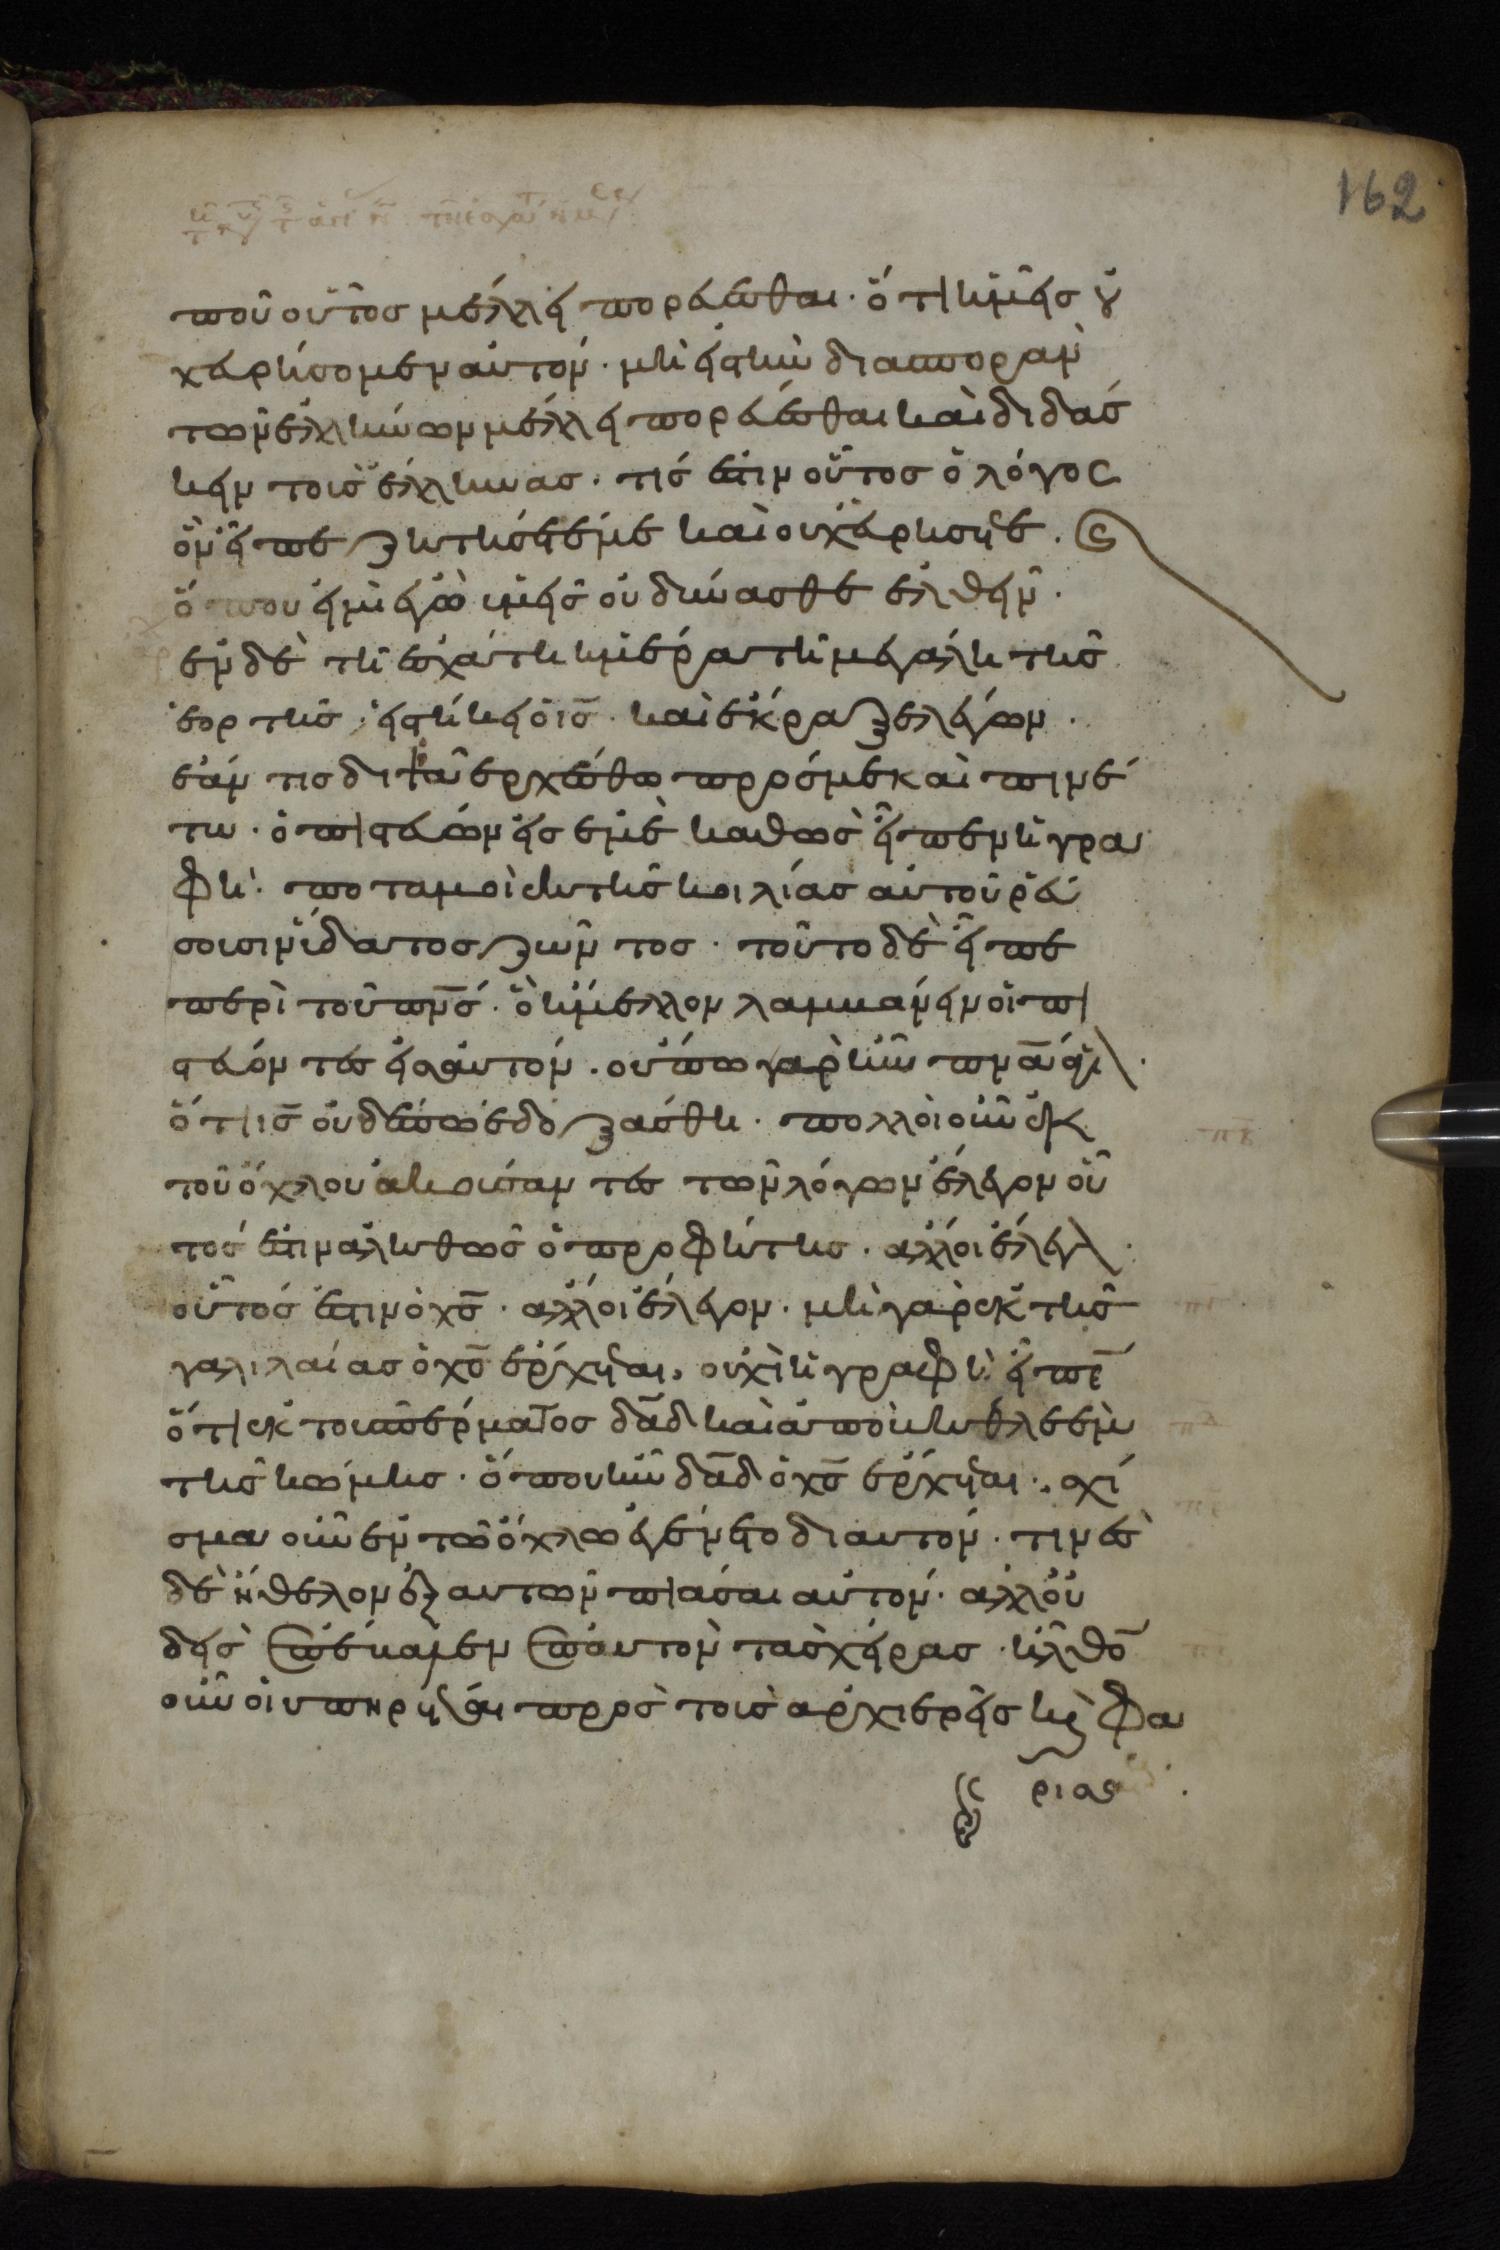 162
ποῦ οὗτος μέλλει πορεύεσθαι· ὅτι ἡμεῖς οὐ
χ εὑρήσομεν αὐτόν· μὴ εἰς τὴν διασποραν
τῶν ἑλλήνων μέλλει πορεύεσθαι καὶ διδάσ
κειν τοὺς ἕλληνας· τίς ἐστιν οὗτος ὁ λόγος
ὃν εἶπε ζητήσετέ με καὶ οὐχ εὑρήσετε·
ὅπου εἰμὶ ἐγὼ ὑμεῖς οὐ δύνασθε ἐλθεῖν·
ἐν δὲ τῇ ἐσχάτῃ ἡμέρα τῇ μεγάλῃ τῆς
ἑορτῆς· εἱστήκει ὁ ις̅· καὶ ἔκραξε λέγων·
ἐάν τις διψᾶ ἐρχέσθω πρός με καὶ πινέ
τω· ὁ πιστεύων εἰς ἐμὲ καθὼς εἶπεν ἡ γρα
φὴ· ποταμοὶ ἐκ τῆς κοιλίας αὐτοῦ ῥεύ
σουσιν ὕδατος ζῶντος· τοῦτο δὲ εἶπε
περὶ τοῦ πν̅ς· οὗ ἤμελλον λαμβάνειν οἱ πι
στεύοντες εἰς αὐτόν· οὔπω γὰρ ἦν πν̅α ἅγι
ὅτι ις̅ οὐδέπω ἐδοξάσθη· πολλοὶ οὖν ἐκ
τοῦ ὄχλου ἀκούσαντες τῶν λόγων ἔλεγον οὗ
τός ἐστιν ἀληθῶς ὁ προφήτης· ἄλλοι ἔλεγ
οὗτός ἐστιν ὁ χς̅· ἄλλοι ἔλεγον· μὴ γὰρ ἐκ τῆς
γαλιλαίας ὁ χς̅ ἔρχεται· οὐχὶ ἡ γραφὴ εἶπε̅
ὅτι ἐκ τοῦ σπέρματος δα̅δ καὶ ἀπὸ βηθλεὲμ
τῆς κώμης· ὅπου ἦν δα̅δ ὁ χς̅ ἔρχεται· σχί
σμα οὖν ἐν τῶ ὄχλω ἐγένετο δι αυτόν· τινὲς
δὲ ἤθελον ἐξ αυτῶν πιάσαι αὐτόν· ἀλλ οὐ
δεὶς ἐπέβαλεν ἐπ αυτὸν τὰς χεῖρας· ἦλθο̅
οὖν οἱ ὑπηρέται πρὸς τοὺς ἀρχιερεῖς κὶ φα
ρισ